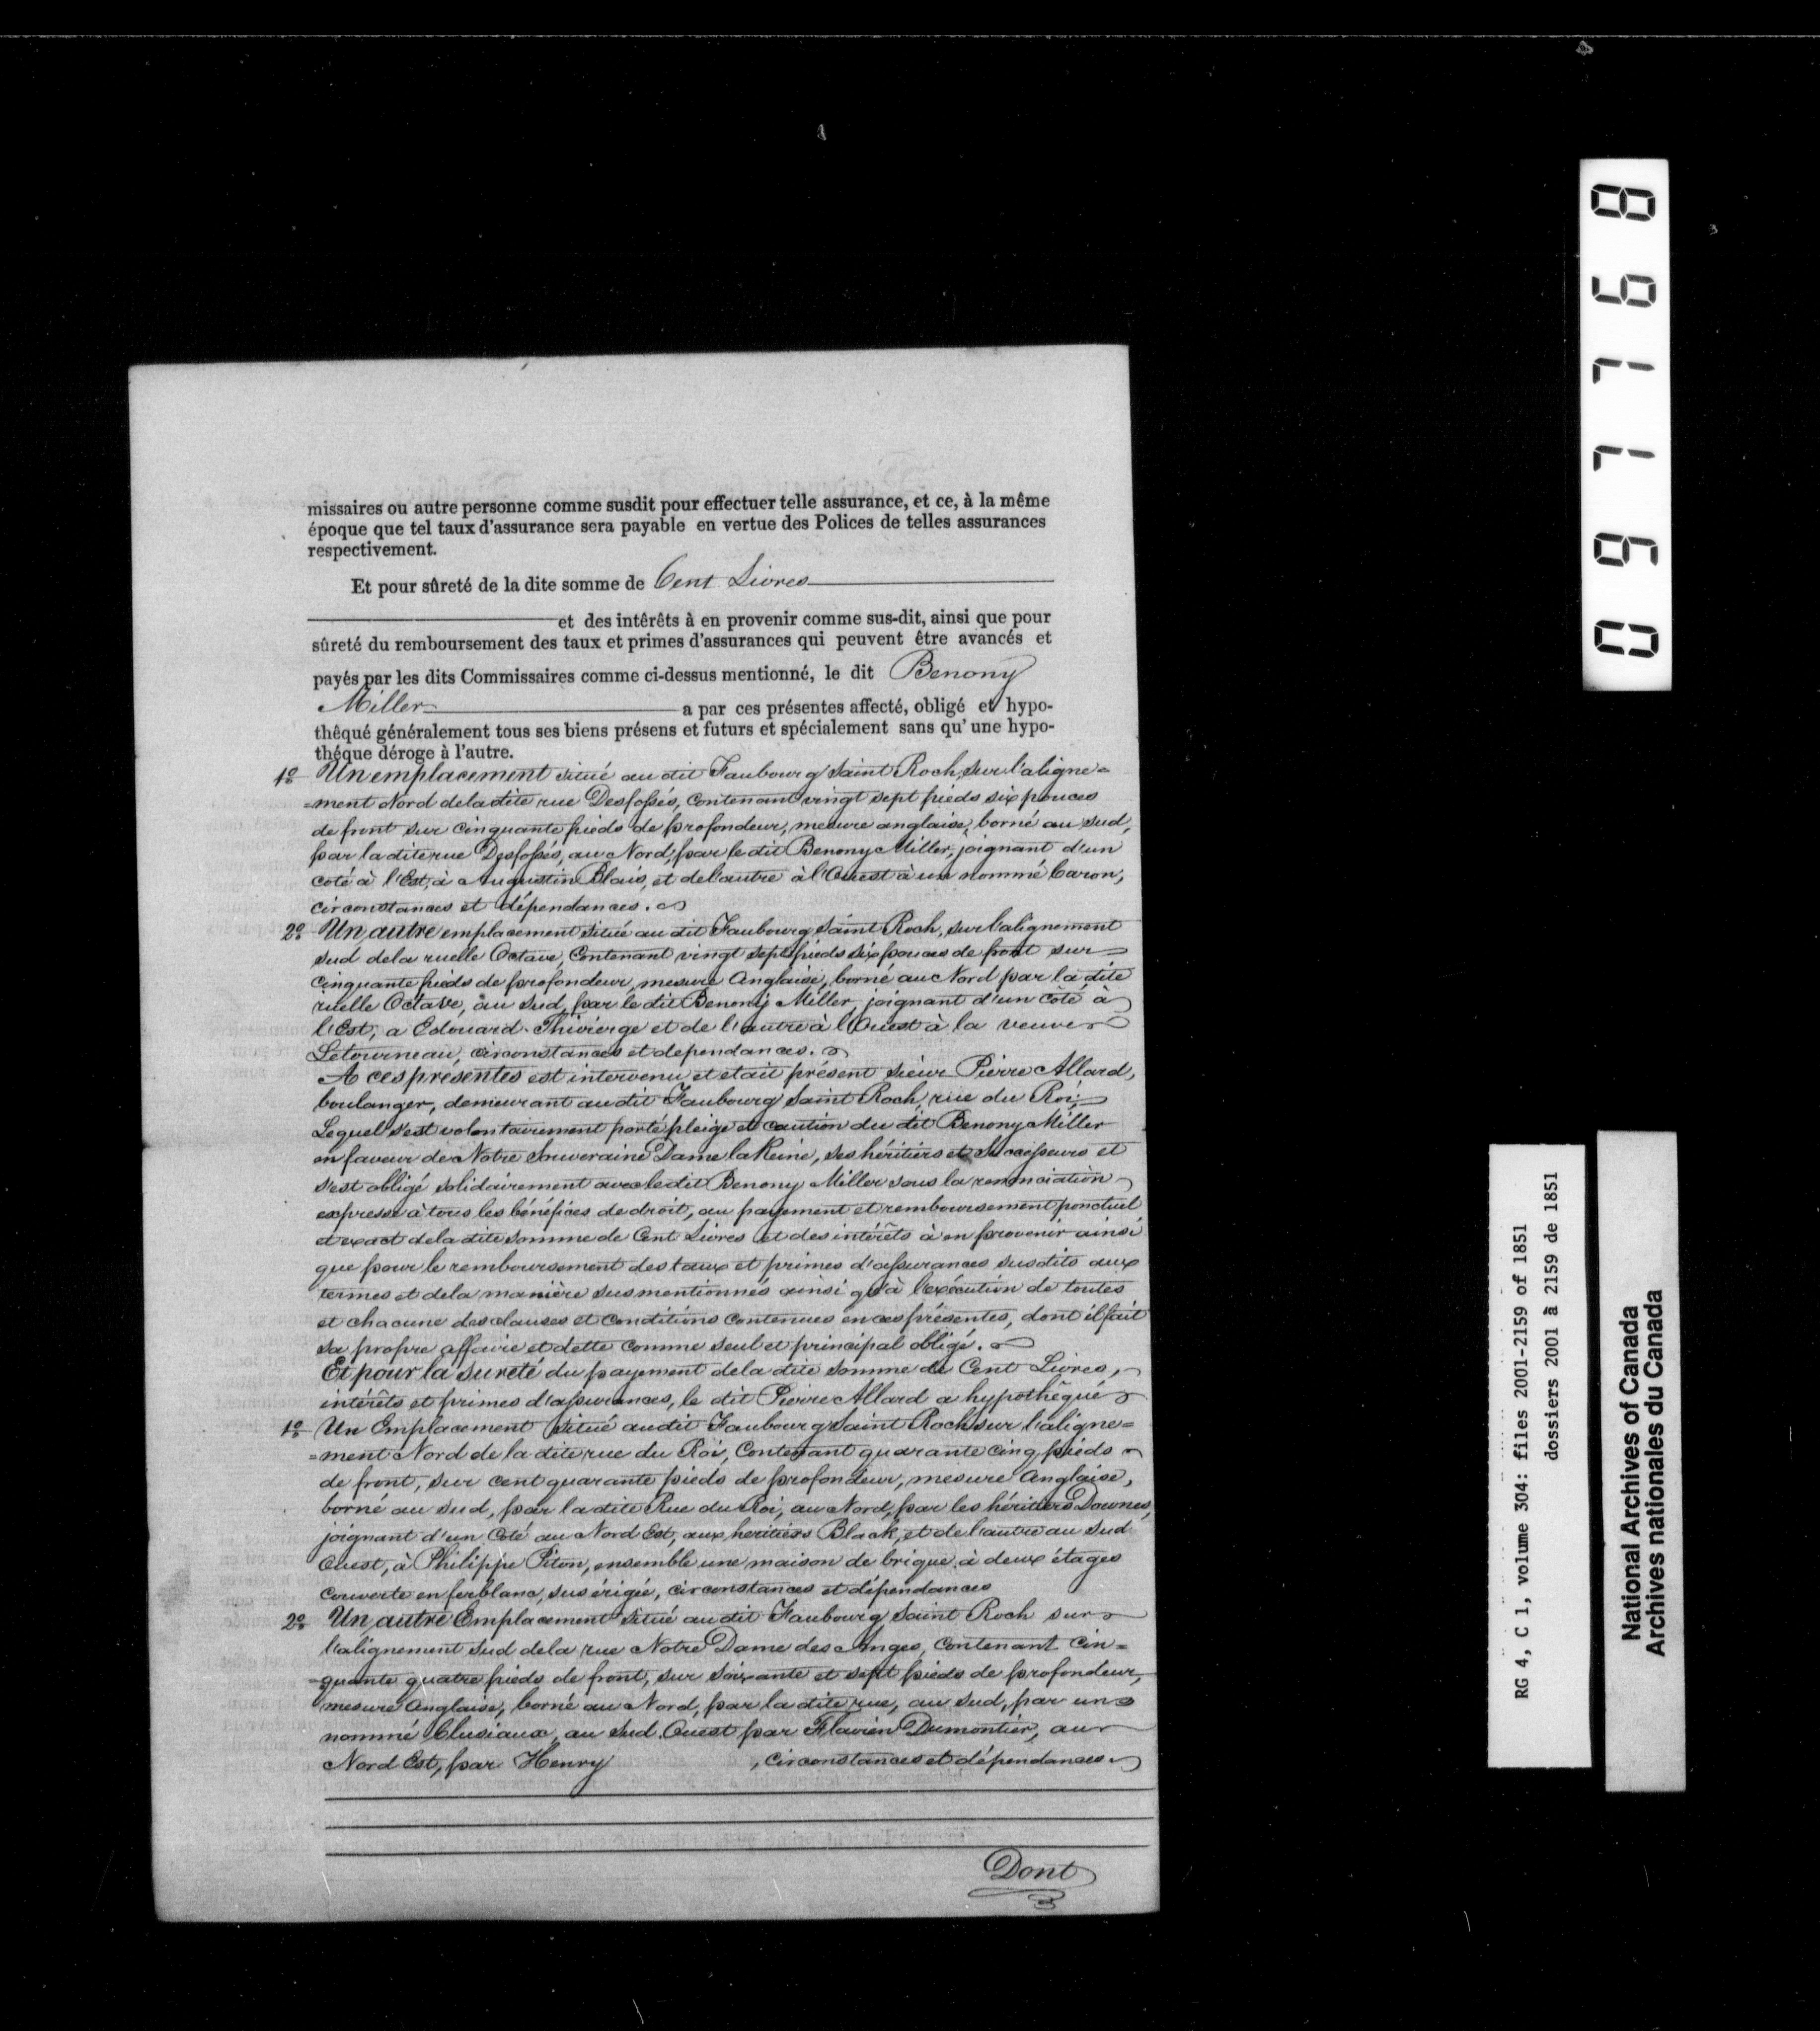 missaires ou autre personne comme susdit pour effectuer telle assurance, et ce, à la même
époque que tel taux d'assurance sera payable en vertue des Polices de telles assurances
respectivement.
Et pour sûreté de la dite somme de Cent Livres
et des intérêts à en provenir comme sus-dit, ainsi que pour
sûreté du remboursement des taux et primes d'assurances qui peuvent être avancés et
payés par les dits Commissaires comme ci-dessus mentionné, le dit Benony
Miller a par ces présentes affecté, obligé et hypo-
thêqué généralement tous ses biens présens et futurs et spécialement sans qu' une hypo-
théque déroge à l'autre.
1o Un emplacement situé au dit Faubourg Saint Roch, sur l'aligne=
=ment Nord de la dite rue Desfossés, contenant vingt sept pieds six pouces
de front sur cinquante pieds de profondeur, mesure anglaise, borné au sud,
par la dite rue Desfossés, au Nord, par le dit Benony Miller, joignant d'un
coté à l'Est, à Augustin Blais, et de l'autre à l'Ouest à un nommé Caron,
circonstances et dépendances.
2o Un autre emplacement situé au dit Faubourg Saint Roch, sur l'alignement
sud de la ruelle Octave, Contenant vingt sept pieds six pouces de front sur
cinquante pieds de profondeur, mesure Anglaise, borné au Nord par la dite
ruelle Octave, au sud, par le dit Benony Miller joignant d'un côté à
l'Est, a Edouard Thivierge et de l'autre à l'Ouest à la veuve
Letourneau, circonstances et dependances.
A ces présentes est intervenu et etait présent sieur Pierre Allard,
boulanger, demeurant au dit Faubourg Saint Roch, rue du Roi,
Lequel s'est volontairement porté pleige et caution du dit Benony Miller
en faveur de Notre Souveraine Dame la Reine, ses héritiers et Successeurs et
s'est obligé solidairement avec le dit Benony Miller sous la renonciation
expresse à tous les bénéfices de droit, au payement et remboursement ponctuel
et exact de la dite somme de Cent Livres et des intérêts à en provenir ainsi
que pour le remboursement des taux et primes d'assurances susdits aux
termes et de la manière susmentionnés ainsi qu'à l'exécution de toutes
et chacune des clauses et conditions contenues en ces présentes, dont il fait
sa propre affaire et dette comme seul et principal obligé.
Et pour la sureté du payement de la dite somme de Cent Livres,
intérêts et primes d'assurances, le dit Pierre Allard a hypothêqué
1o Un Emplacement situé au dit Faubourg Saint Roch sur l'aligne=
=ment Nord de la dite rue du Roi, Contenant quarante cinq pieds
de front, sur cent quarante pieds de profondeur, mesure Anglaise,
borné au sud, par la dite Rue du Roi, au Nord, par les héritiers Downes,
joignant d'un Coté au Nord Est, aux heritiers Black, et de l'autre au Sud
Ouest, à Philippe Piton, ensemble une maison de brique à deux étages
couverte en ferblanc, sus érigée, circonstances et dépendances
2o Un autre Emplacement situé au dit Faubourg Saint Roch sur
l'alignement sud de la rue Notre Dame des Anges, contenant Cin=
=quante quatre pieds de front, sur soixante et sept pieds de profondeur,
mesure Anglaise, borné au Nord, par la dite rue, au sud, par un
nommé Clusiaux, au Sud Ouest par Flavien Dumontier, au
Nord Est, par Henry , circonstances et dépendances
Dont
097768
RG 4, C 1, volume 304: files 2001-2159 of 1851
dossiers 2001 à 2159 de 1851
National Archives of Canada
Archives nationales du Canada